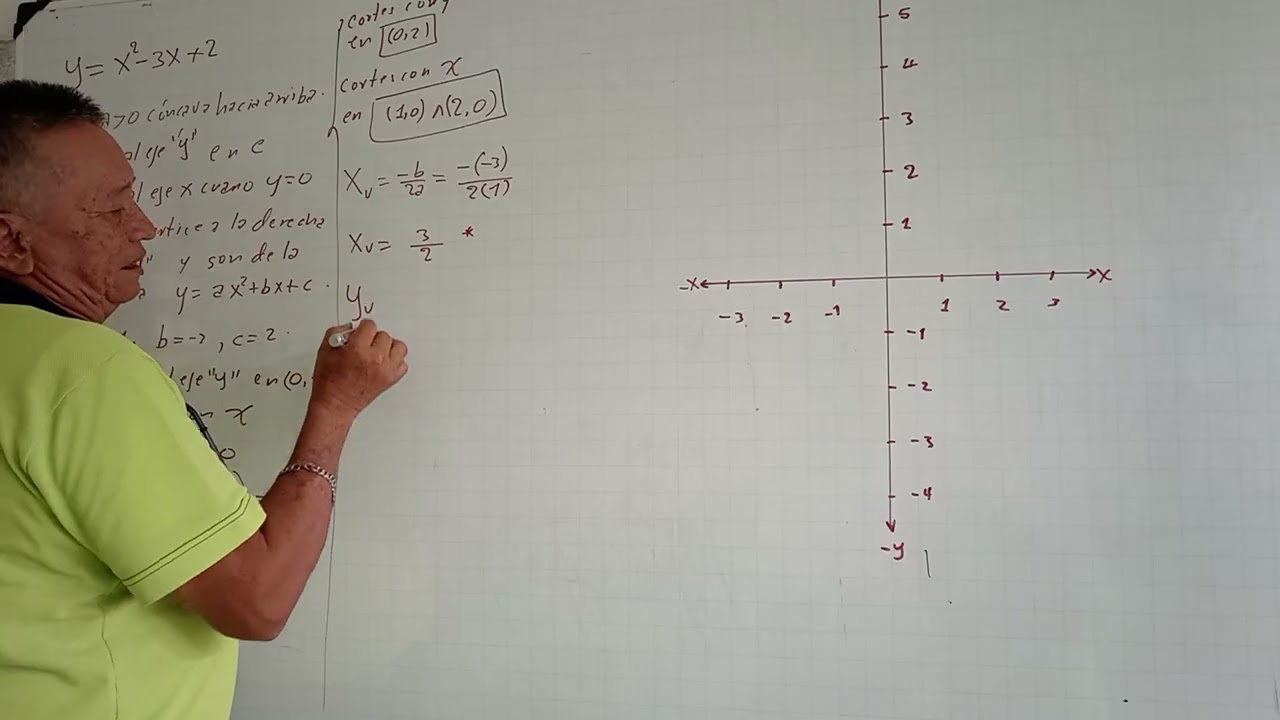 y = x² - 3x + 2
a>0 cóncava hacia arriba.
eje "y" en c
eje x cuano y=0
vértice a la derecha
y son de la
y = ax² + bx + c.
b=-3, c=2.
eje "y" en (0,
en x
0
cortes con y
en (0,2)
cortes con x
en (1,0) ∧ (2,0)
Xv = -b/2a = -(-3)/2(1)
Xv = 3/2 *
yv
5
4
3
2
1
-x x
-3 -2 -1 1 2 3
-1
-2
-3
-4
-y